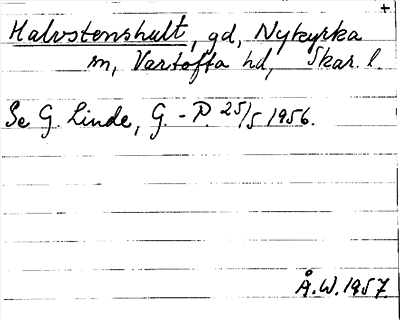 +
Halvstenshult, gd, Nykyrka
sn, Vartofta hd, Skar. l.
Se G. Linde, G.-P. 25/5 1956.
Å.W. 1957.